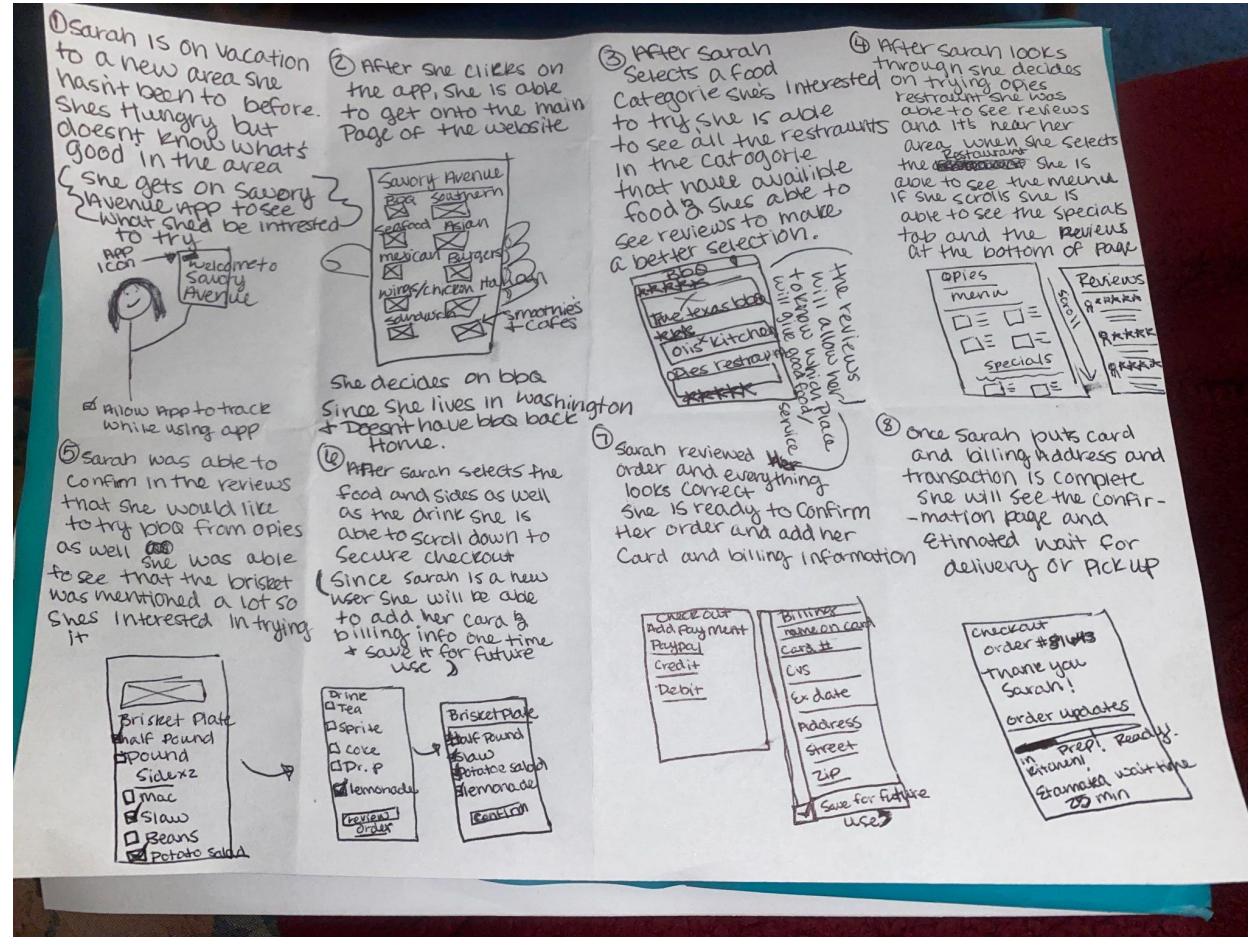 ① Sarah is on vacation
to a new area she
hasn't been to before.
Shes Hungry but
doesn't know what's
good in the area
She gets on Savory
Avenue App to see
what shed be intrested
to try
App
Icon
welcome to
Savory
Avenue
Allow App to track
while using app
② After she clicks on
the app, she is able
to get onto the main
Page of the website
Savory Avenue
BBQ Southern
Seafood Asian
mexican Burgers
wings/chicken
Sandwich
Smoothies
+ Cafes
She decides on bbQ
Since she lives in washington
+ Doesn't have bbQ back
Home.
③ After Sarah
Selects a food
Categorie she's Interested
to try she is able
to see all the restraunts
in the catogorie
that have availible
food & shes able to
see reviews to make
a better selection.
BBQ
True texas bbq
Olis kitchen
Opies restraunt
the reviews
will allow her
to know which place
will give good food/
service
④ After Sarah looks
through she decides
on trying Opies
restraunt she was
able to see reviews
and it's near her
area, when she selects
the Restaurant she is
able to see the meinu
if she scrolls she is
able to see the specials
tab and the Reviews
at the bottom of page
Opies
menu
Specials
Scroll
Reviews
⑤ Sarah was able to
confirm in the reviews
that she would like
to try bbQ from opies
as well she was able
to see that the brisket
was mentioned a lot so
shes interested in trying
it
Brisket Plate
half Pound
Pound
Sidex2
Mac
Slaw
Beans
Potato Salad
⑥ After sarah selects the
food and sides as well
as the drink she is
able to scroll down to
Secure checkout
(Since Sarah is a new
user she will be able
to add her card &
billing info one time
+ save it for future
use)
Drink
Tea
Sprite
Coke
Dr. P
lemonade
review
order
Brisket Plate
Half Pound
Slaw
Potatoe salad
lemonade
Confirm
⑦ Sarah reviewed
order and everything
looks correct
She is ready to confirm
Her order and add her
Card and billing information
Checkout
Add payment
Paypal
Credit
Debit
Billing
name on card
Card #
CVS
Ex date
Address
Street
Zip
Save for future
use
⑧ Once Sarah puts card
and billing Address and
transaction is complete
She will see the confir-
-mation page and
Etimated wait for
delivery or Pick up
Checkout
order #
Thank you
Sarah!
order updates
in Prep! Ready.
kitchen!
wait time
min